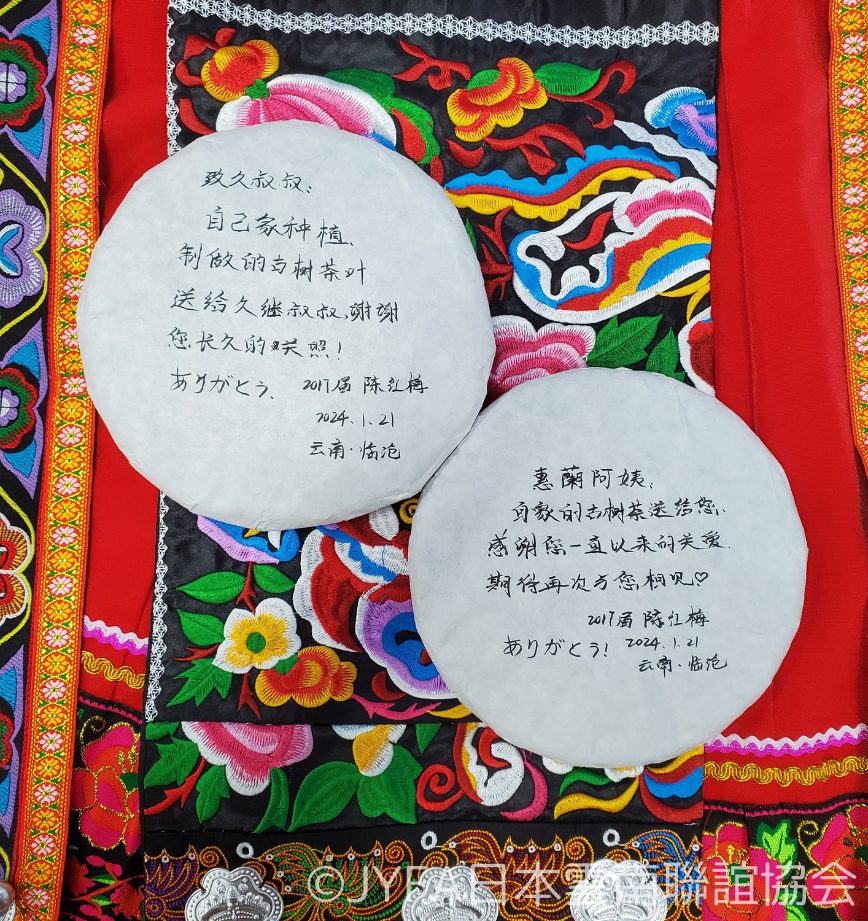 致久叔叔：
自己家种植、
制做的古树茶叶
送给久继叔叔,谢谢
您长久的关照！
ありがとう、 2017届 陈红梅
2024.1.21
云南·临沧
惠蘭阿姨、
自家的古树茶送给您、
感谢您一直以来的关爱.
期待再次与您相见♡
2017届 陈红梅
ありがとう! 2024.1.21
云南·临沧
©JYFA日本雲南聯誼協会